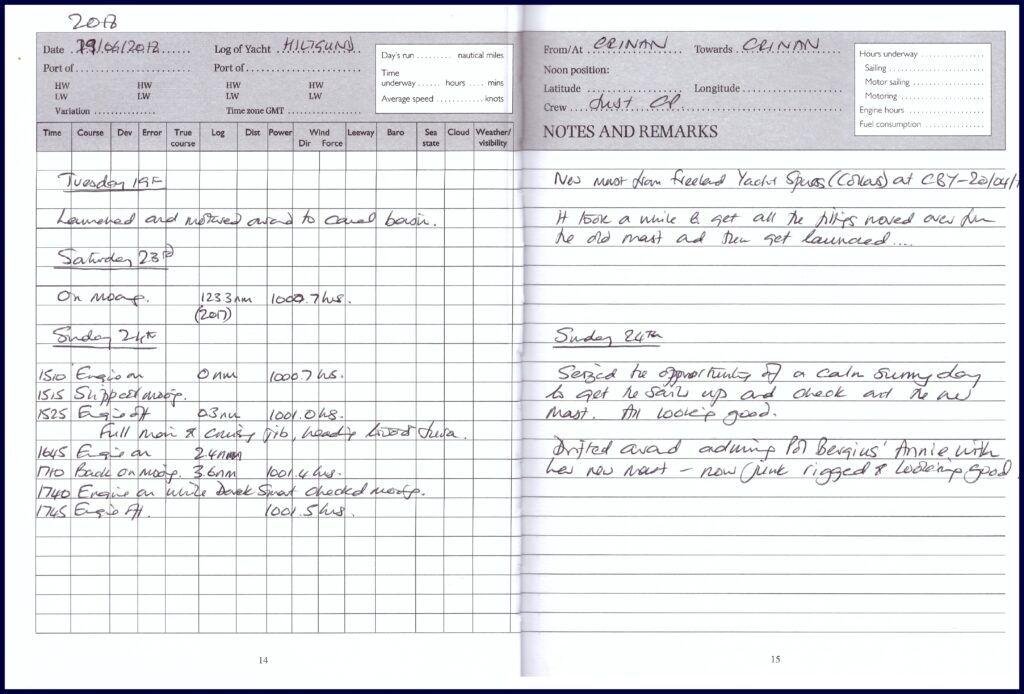 2018
Date 19/06/2018 Log of Yacht HILTGUND
Port of Port of
HW HW HW HW
LW LW LW LW
Variation Time zone GMT
Day's run nautical miles
Time
underway hours mins
Average speed knots
Time Course Dev Error True course Log Dist Power Wind Dir Force Leeway Baro Sea state Cloud Weather/visibility
Tuesday 19th
Launched and motored around to canal basin.
Saturday 23rd
On mooring. 1233nm 1000.7 hrs.
(2017)
Sunday 24th
1510 Engine on 0nm 1000.7 hs.
1515 Slipped mooring.
1525 Engine off 0.3nm 1001.0 hs.
Full main & cruising jib, heading toward Jura.
1645 Engine on 2.4nm
1710 Back on mooring. 3.6nm 1001.4 hs.
1740 Engine on while Derek Smart checked mooring.
1745 Engine off. 1001.5 hrs.
14
From/At CRINAN Towards CRINAN
Noon position:
Latitude Longitude
Crew Just
NOTES AND REMARKS
Hours underway
Sailing
Motor sailing
Motoring
Engine hours
Fuel consumption
New mast from Freeland Yacht Spares (Collars) at CBY - 20/04/
It took a while to get all the fittings moved over from
the old mast and then get launched....
Sunday 24th
Seized the opportunity of a calm sunny day
to get the sails up and check out the new
mast. All looking good.
Drifted around admiring Pol Bergius' Annie with
her new mast - now junk rigged & looking good
15